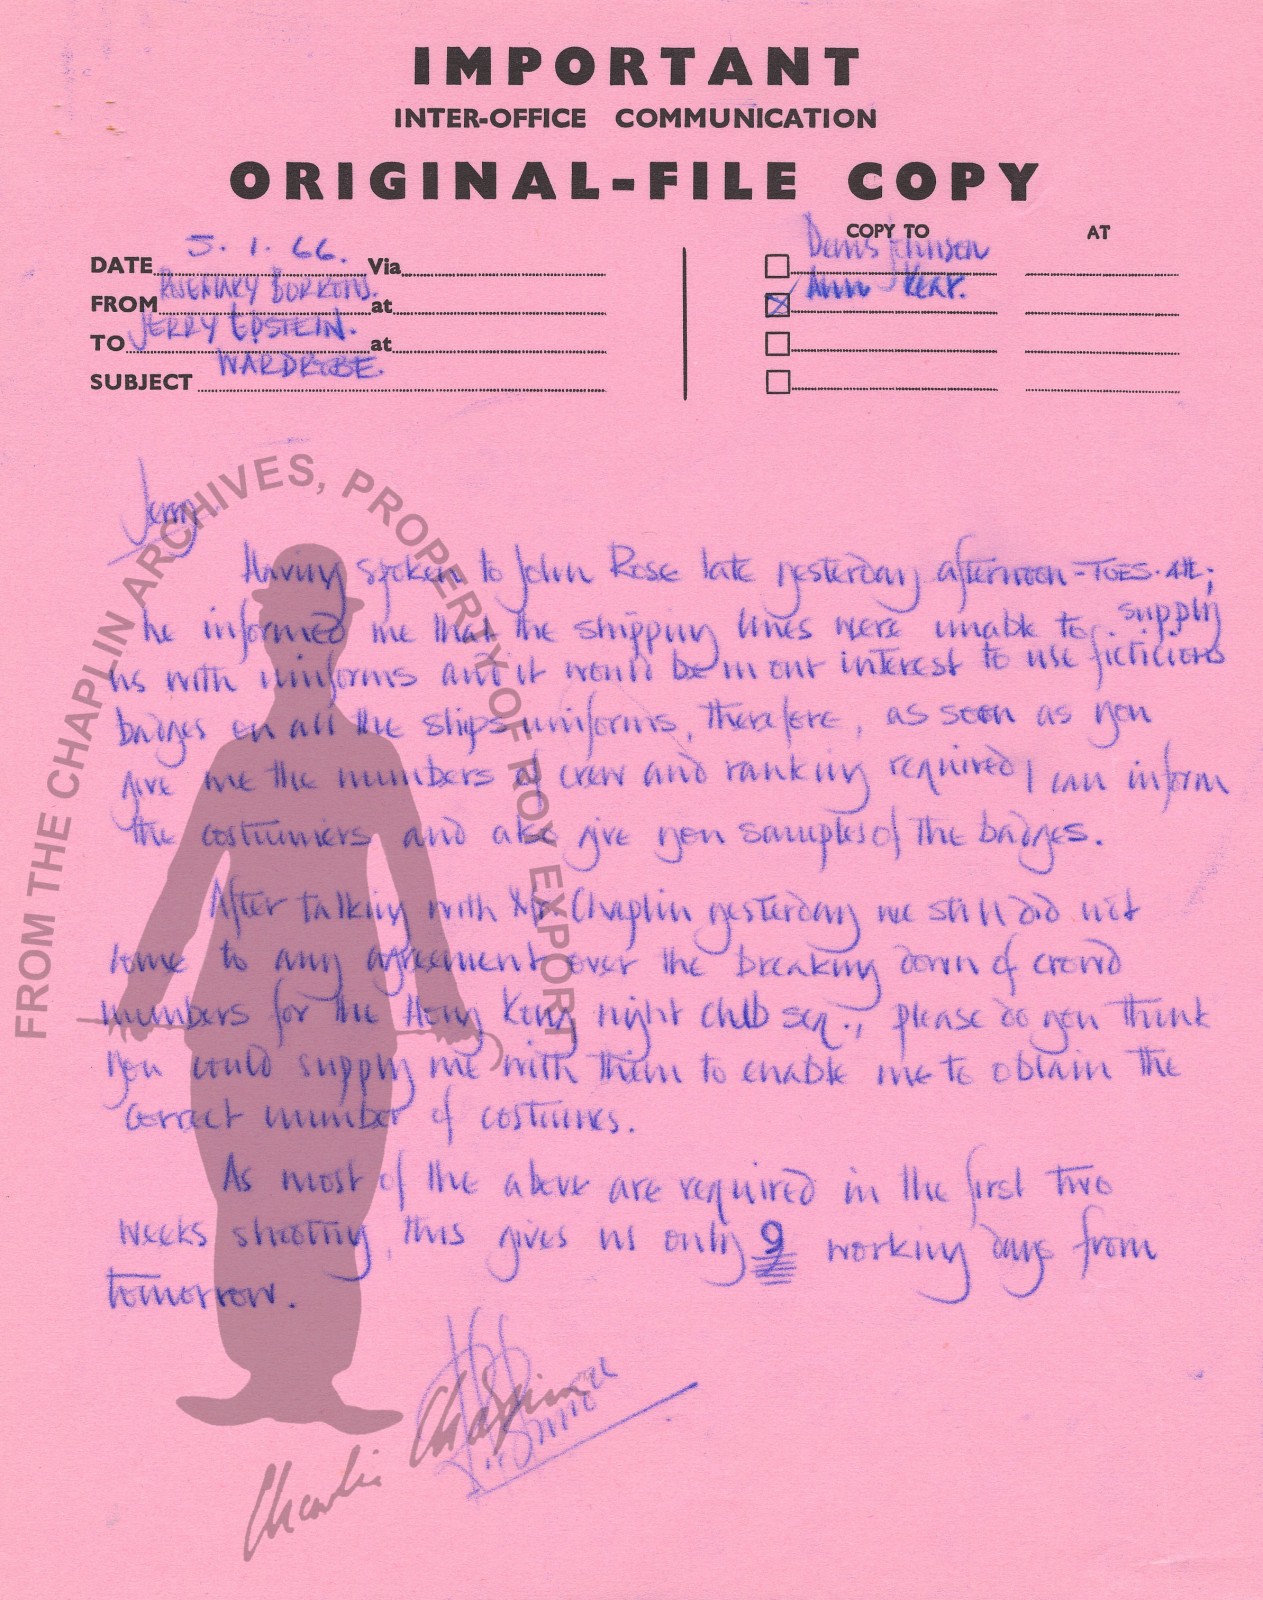 IMPORTANT
INTER-OFFICE COMMUNICATION
ORIGINAL-FILE COPY
COPY TO AT
DATE 5.1.66. Via
FROM ROSEMARY BURROWS. at
TO JERRY EPSTEIN. at
SUBJECT WARDROBE.
Denis Johnson
Ann Kerr.
Jerry
Having spoken to John Rose late yesterday afternoon - TUES. 4th;
he informed me that the shipping lines were unable to supply
us with uniforms and it would be in our interest to use ficticious
badges on all the ships uniforms, therefore, as soon as you
give me the numbers of crew and ranking required I can inform
the costumiers and also give you samples of the badges.
After talking with Mr Chaplin yesterday we still did not
come to any agreement over the breaking down of crowd
numbers for the Hong Kong night club seq., please do you think
you could supply me with them to enable me to obtain the
correct number of costumes.
As most of the above are required in the first two
weeks shooting, this gives us only 9 working days from
tomorrow.
FROM THE CHAPLIN ARCHIVES, PROPERTY OF ROY EXPORT
Charlie Chaplin